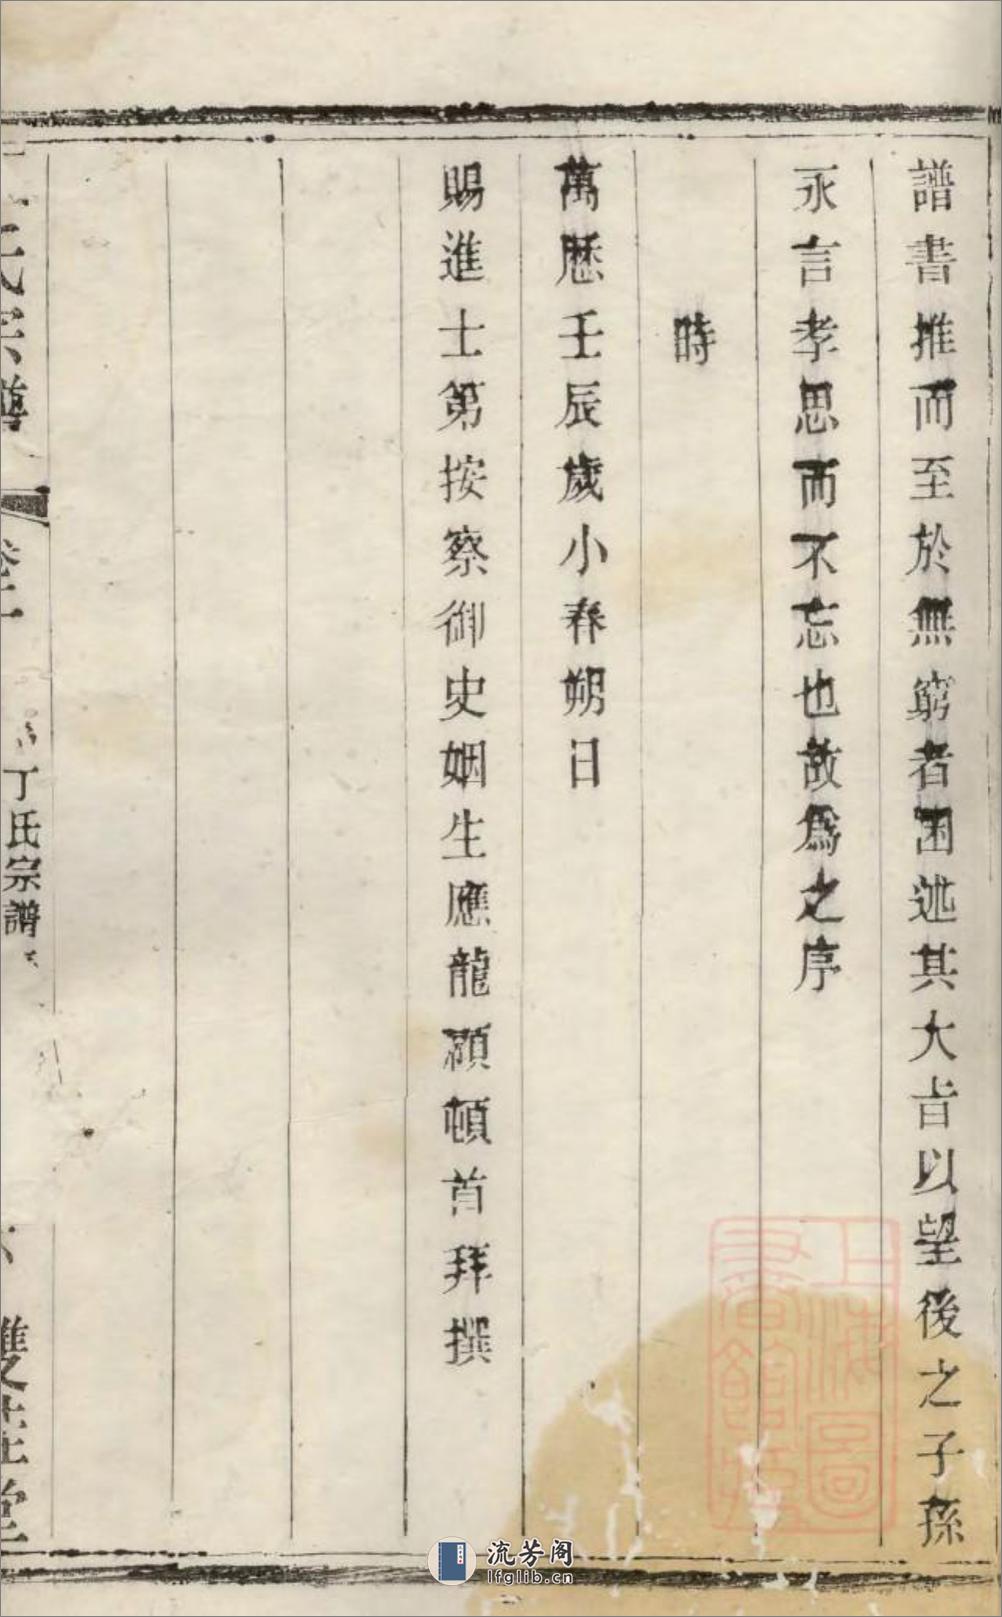 譜書推而至於無窮者因述其大旨以望後之子孫
永言孝思而不忘也故爲之序
時
萬歷壬辰歲小春朔日
賜進士第按察御史姻生應龍顧頓首拜撰
丁氏宗譜
上海圖書館藏
流芳阁
lfglib.cn